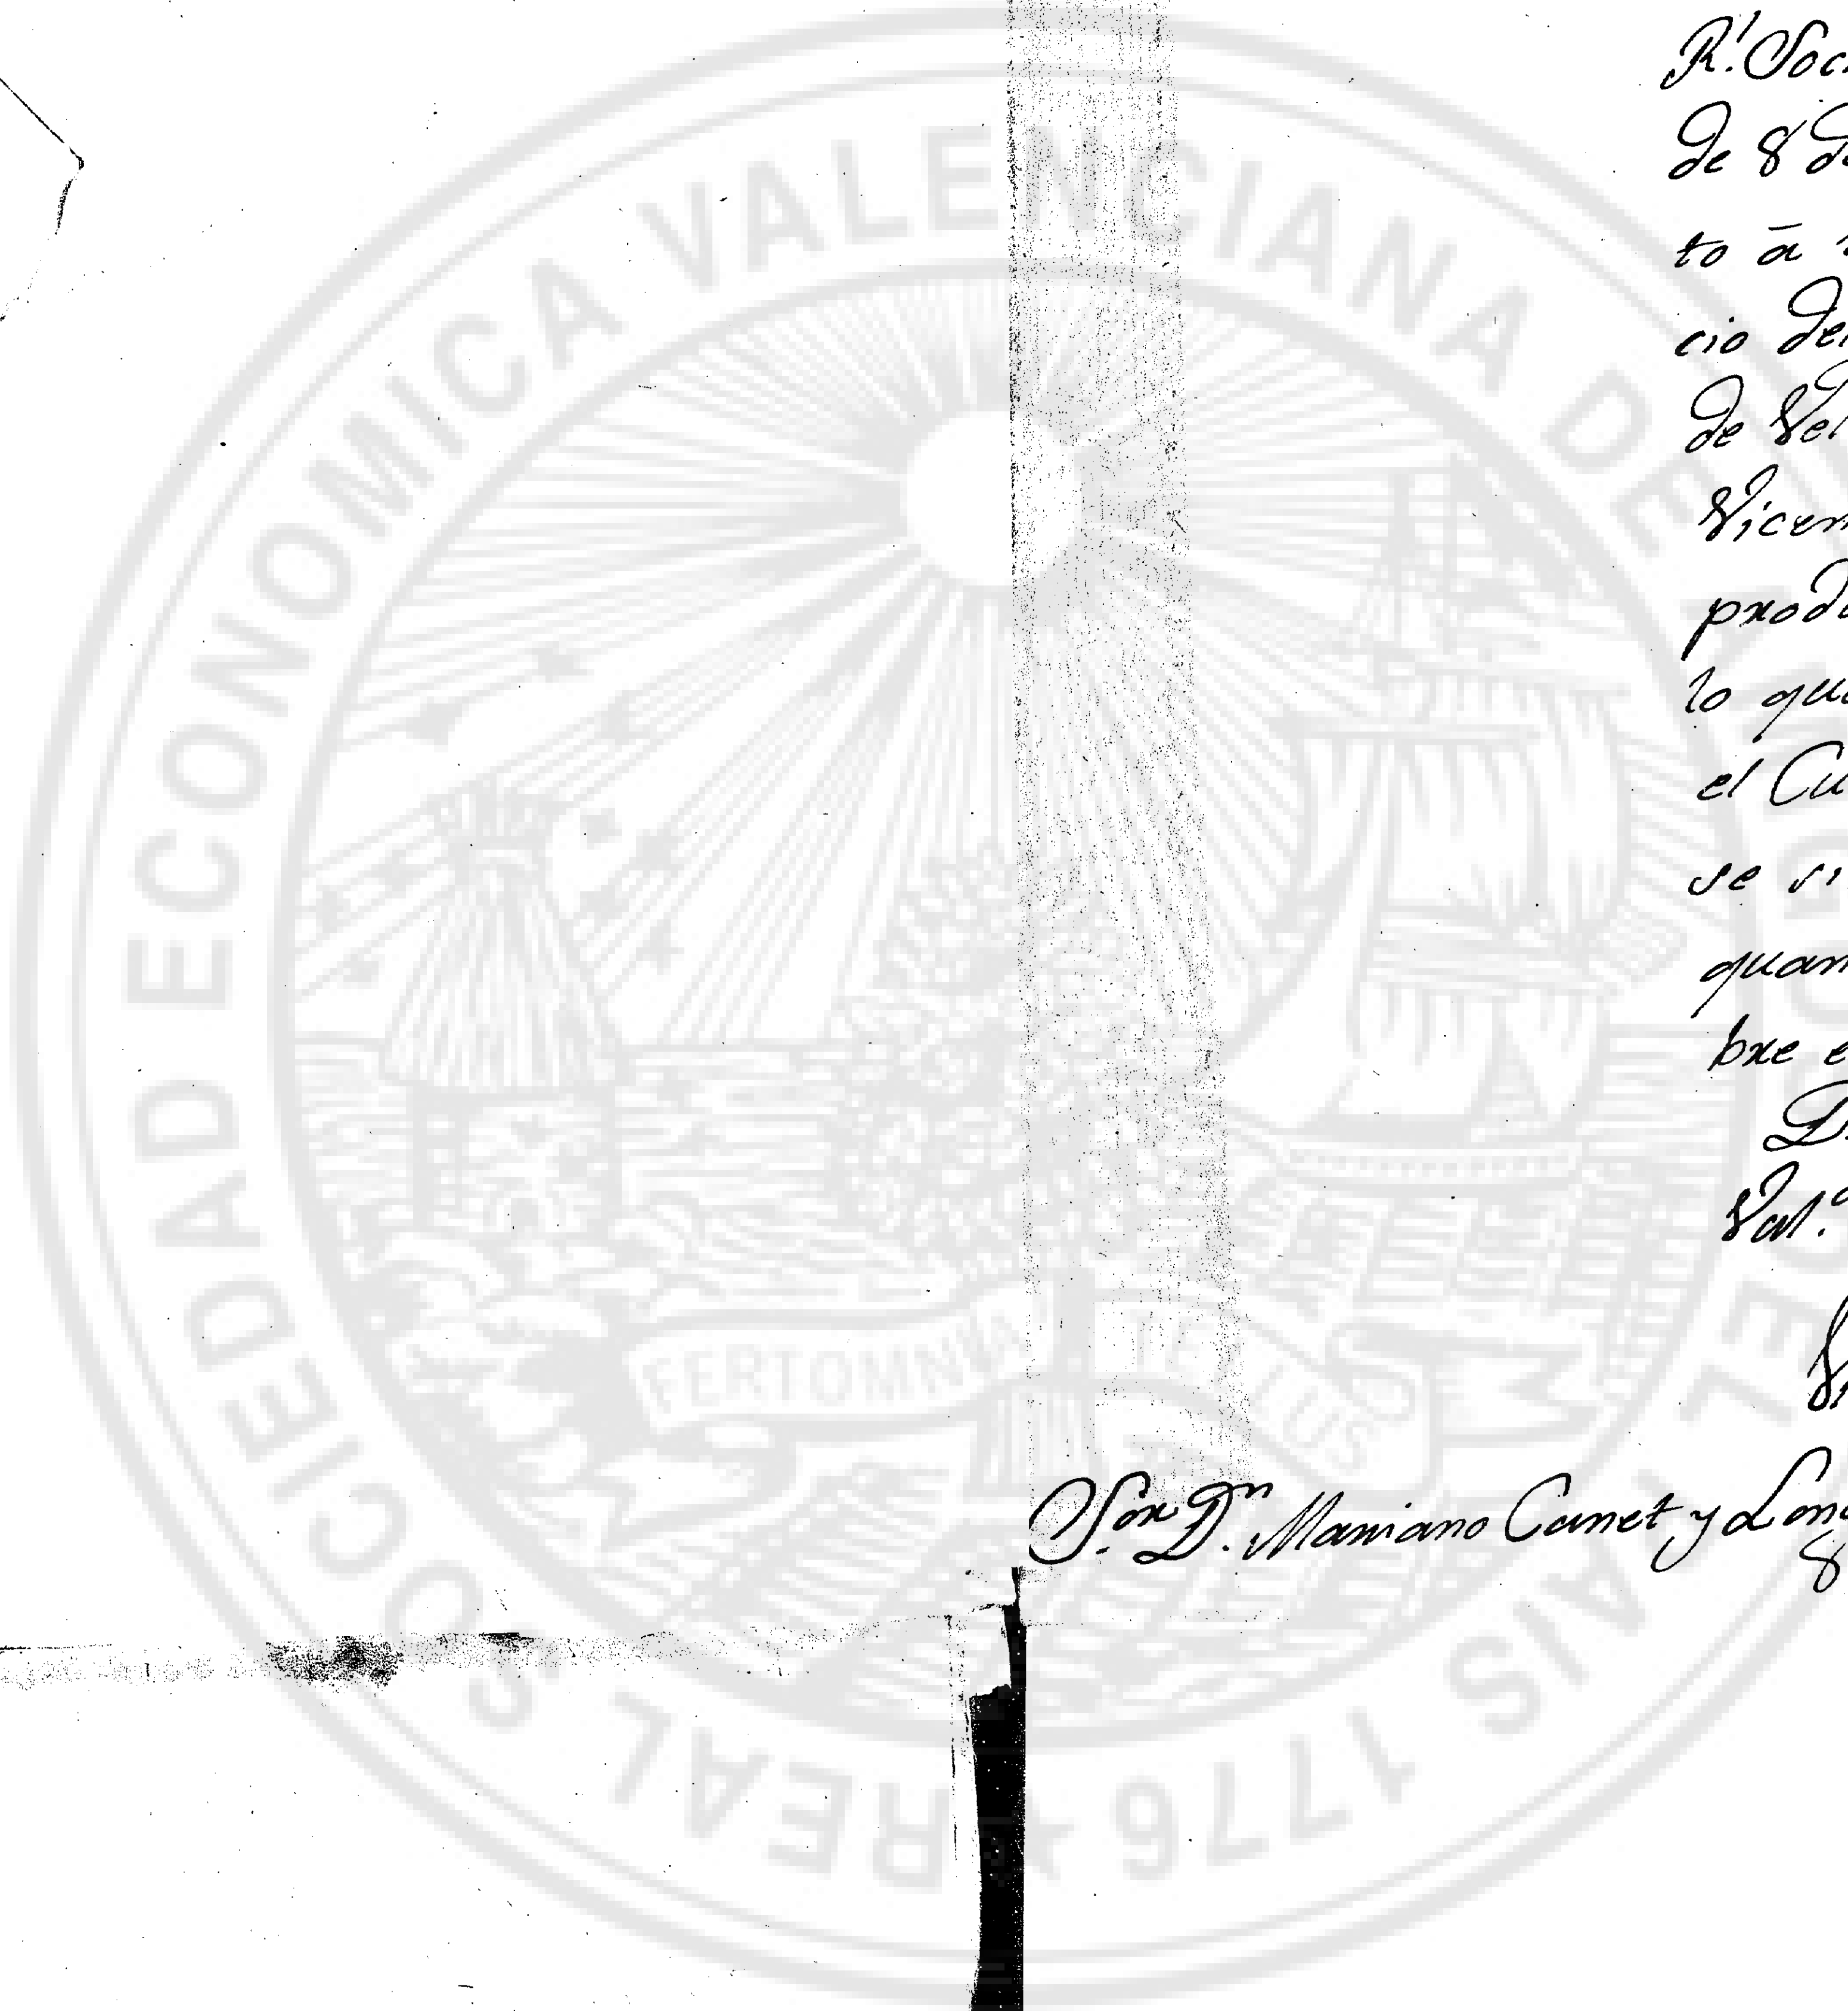 R.l Soc
de 8 de
to ā
cio del
de Vel
Vicen
produ
lo que
el Cu
se si
quan
bre e
D
Val.a
Sor. Dn. Mariano Canet y Long
8
REAL SOCIEDAD ECONOMICA VALENCIANA DE AMIGOS DEL PAIS 1776
FERTOMNIA